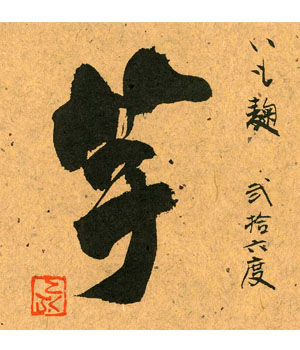 いも麹　弐拾六度
芋